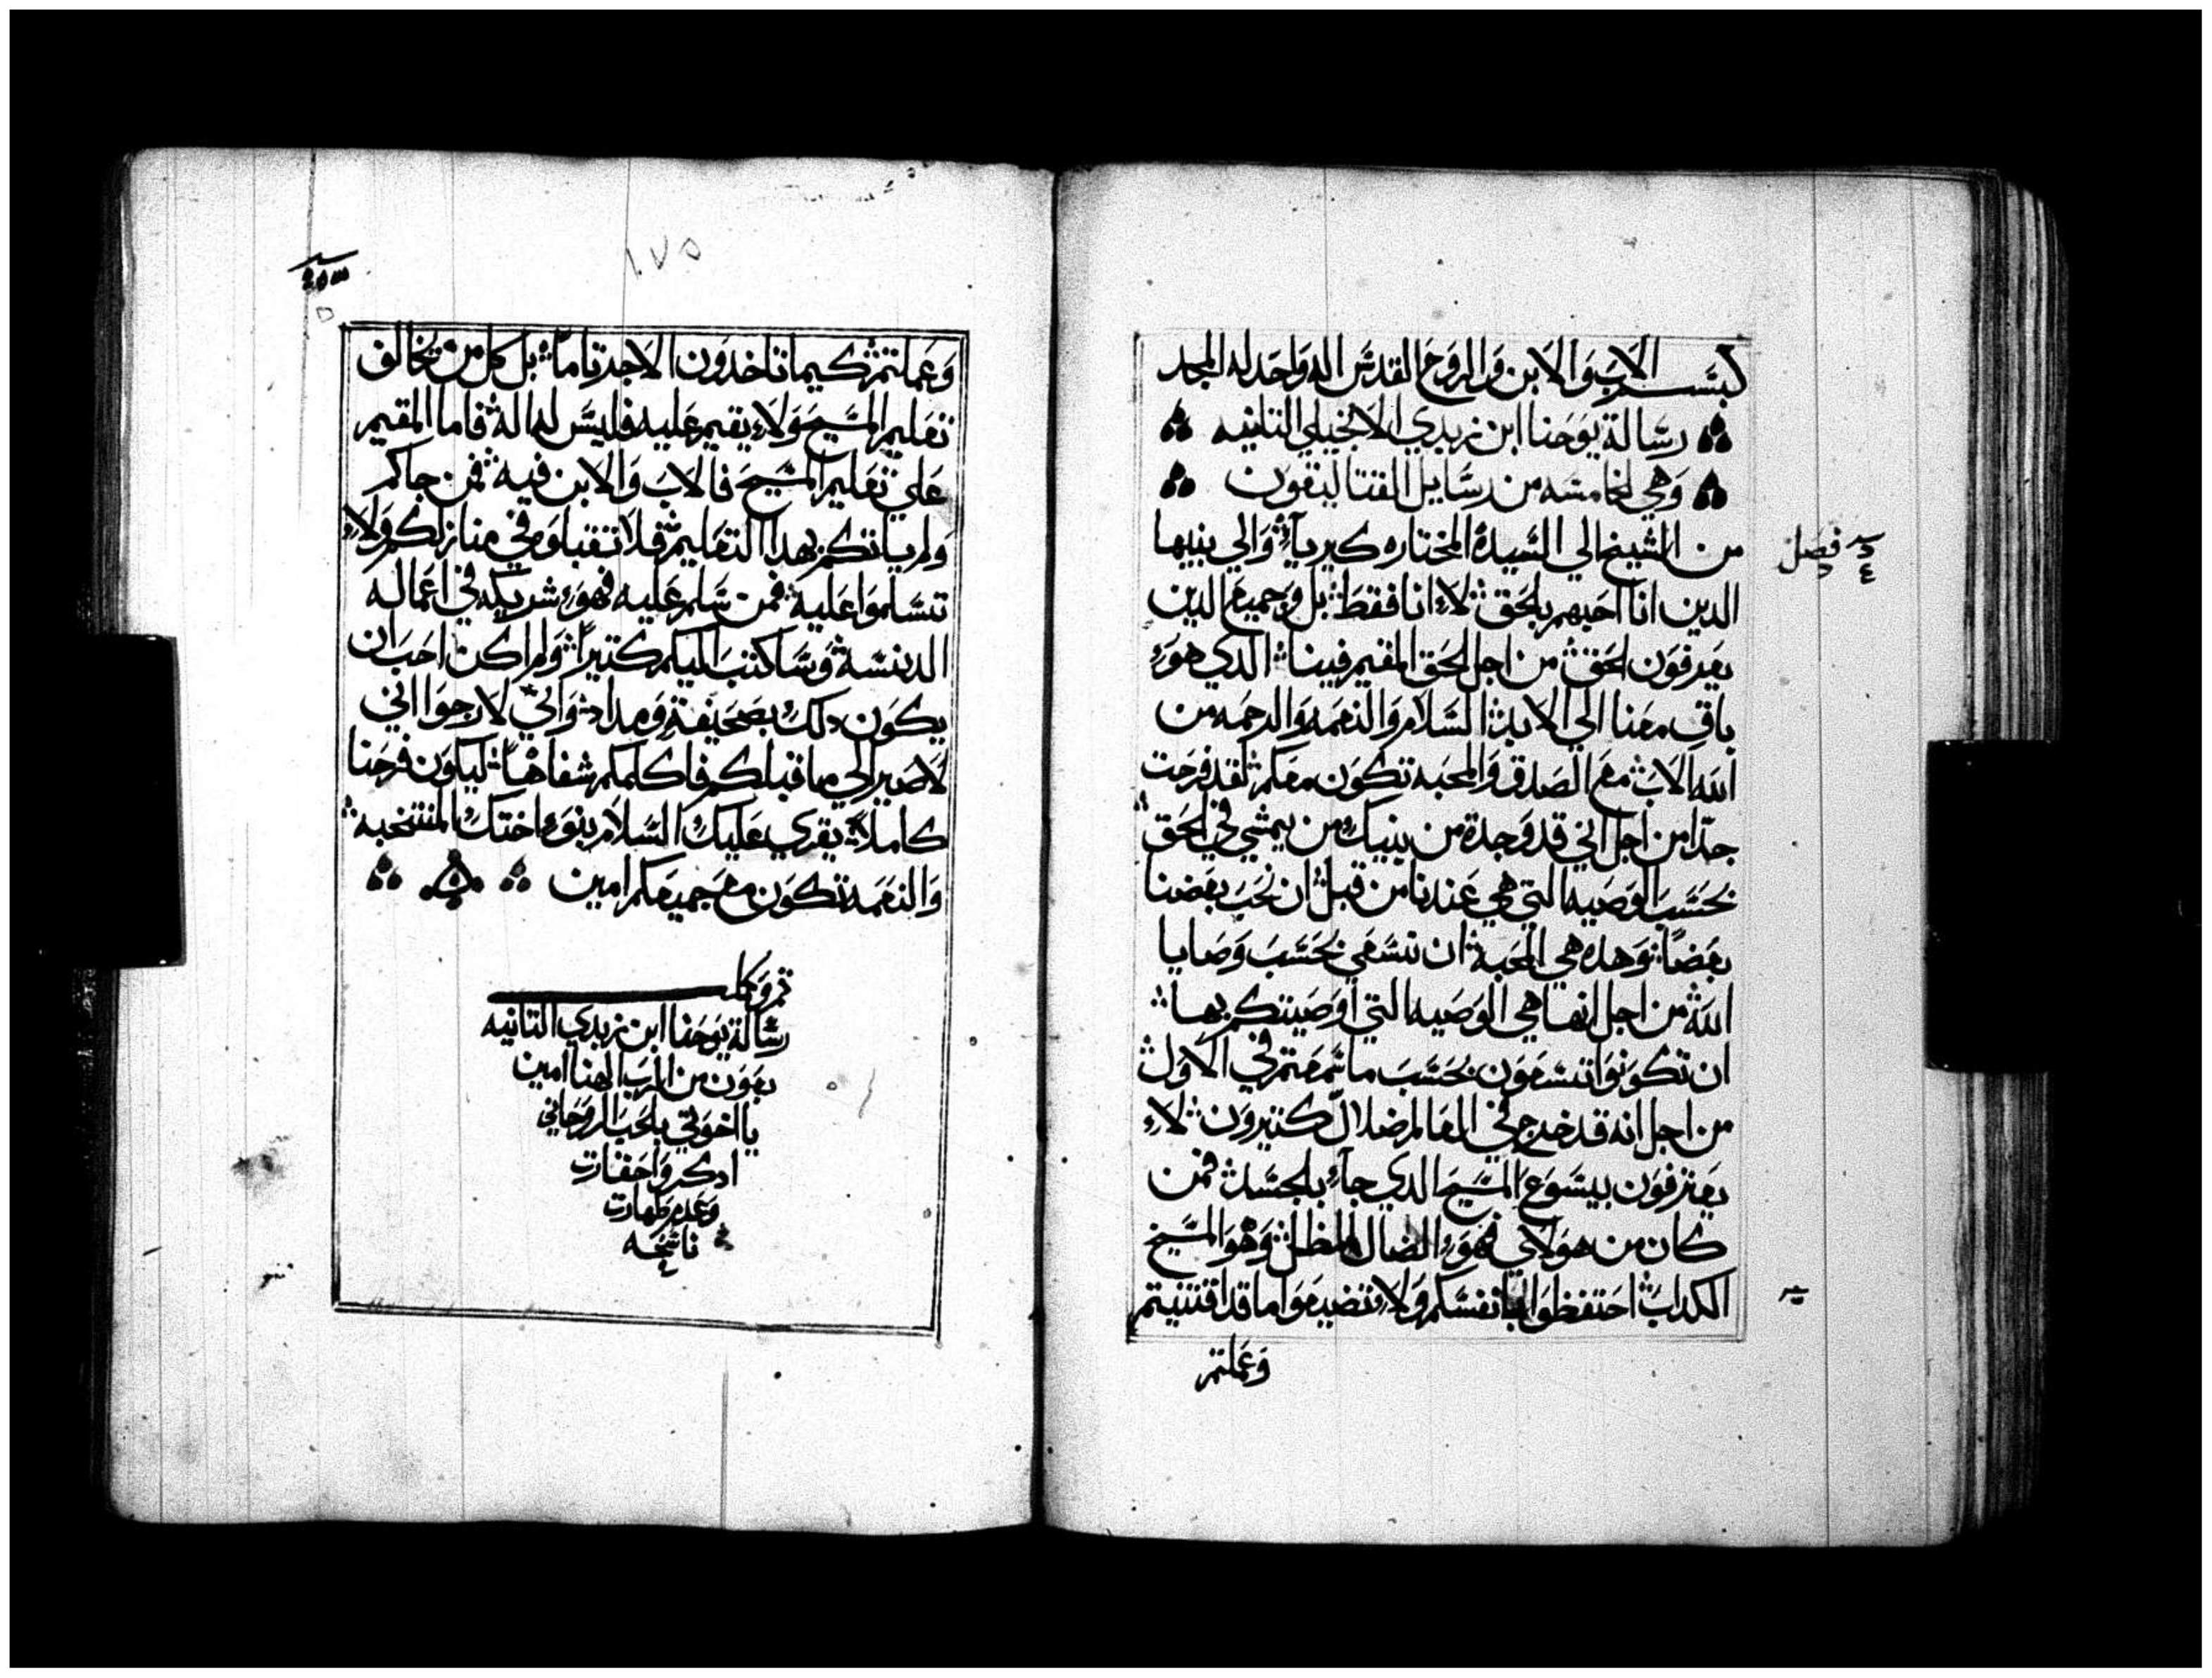 بسم الاب والابن والروح القدس اله واحد له المجد
رسالة يوحنا ابن زبدي الانجيلي التانيه
وهي الخامسه من رسايل القتاليقون
من الشيخ الي السيدة المختاره كيريآء والي بنيها
الدين انا احبهم بالحق لاء انا فقط بل وجميع الدين
يعرفون الحق من اجل الحق المقيم فينا الدي هوء
باق معنا الي الابد السلام والنعمه والرحمه من
الله الاب مع الصدق والمحبه تكون معكم لقد فرحت
جدا من اجل اني قد وجدة من بنيك من يمشي في الحق
بحسب الوصيه التي هي عندنا من قبل ان نحب بعضنا
بعضا وهده هي المحبة ان نسعي بحسب وصايا
الله من اجل انها هي الوصيه التي اوصيتكم بها
ان تكونوا تسعون بحسب ما سمعتم في الاول
من اجل انه قد خرج في العالم ضلال كتيرون لاء
يعترفون بيسوع المسيح الدي جاء بالجسد فمن
كان من هولاي فهوء الضال المظل وهو المسيخ
الكداب احتفظوا بانفسكم ولاء تضيعوا ما قد اقتنيتم
وعملتم
فصل
١٧٥
وعملتم كيما تاخدون الاجد تاما بل كل من يخالف
تعليم المسيح ولاء يقيم عليه فليس له اله فاما المقيم
علي تعليم المسيح فالاب والابن فيه فمن جاكم
ولم ياتكم بهدا التعليم فلا تقبلوه في منازلكم ولاء
تسلموا عليه فمن سلم عليه فهوء شريكه في اعماله
الدنسة وساكتب اليكم كتيرا ولم اكن احب ان
يكون دلك بصحيفة ومداد واني لارجوا اني
لاصير الي ما قبلكم فاكلمكم شفاها ليكون فرحنا
كاملا يقري عليك السلام بنوء اختك المنتخبه
والنعمه تكون مع جميعكم امين
تم وكمل
رسالة يوحنا ابن زبدي التانيه
بعون من الرب الهنا امين
يا اخوتي بالحب الروحاني
ادكروا حقارت
وعدم طهارت
ناسخه